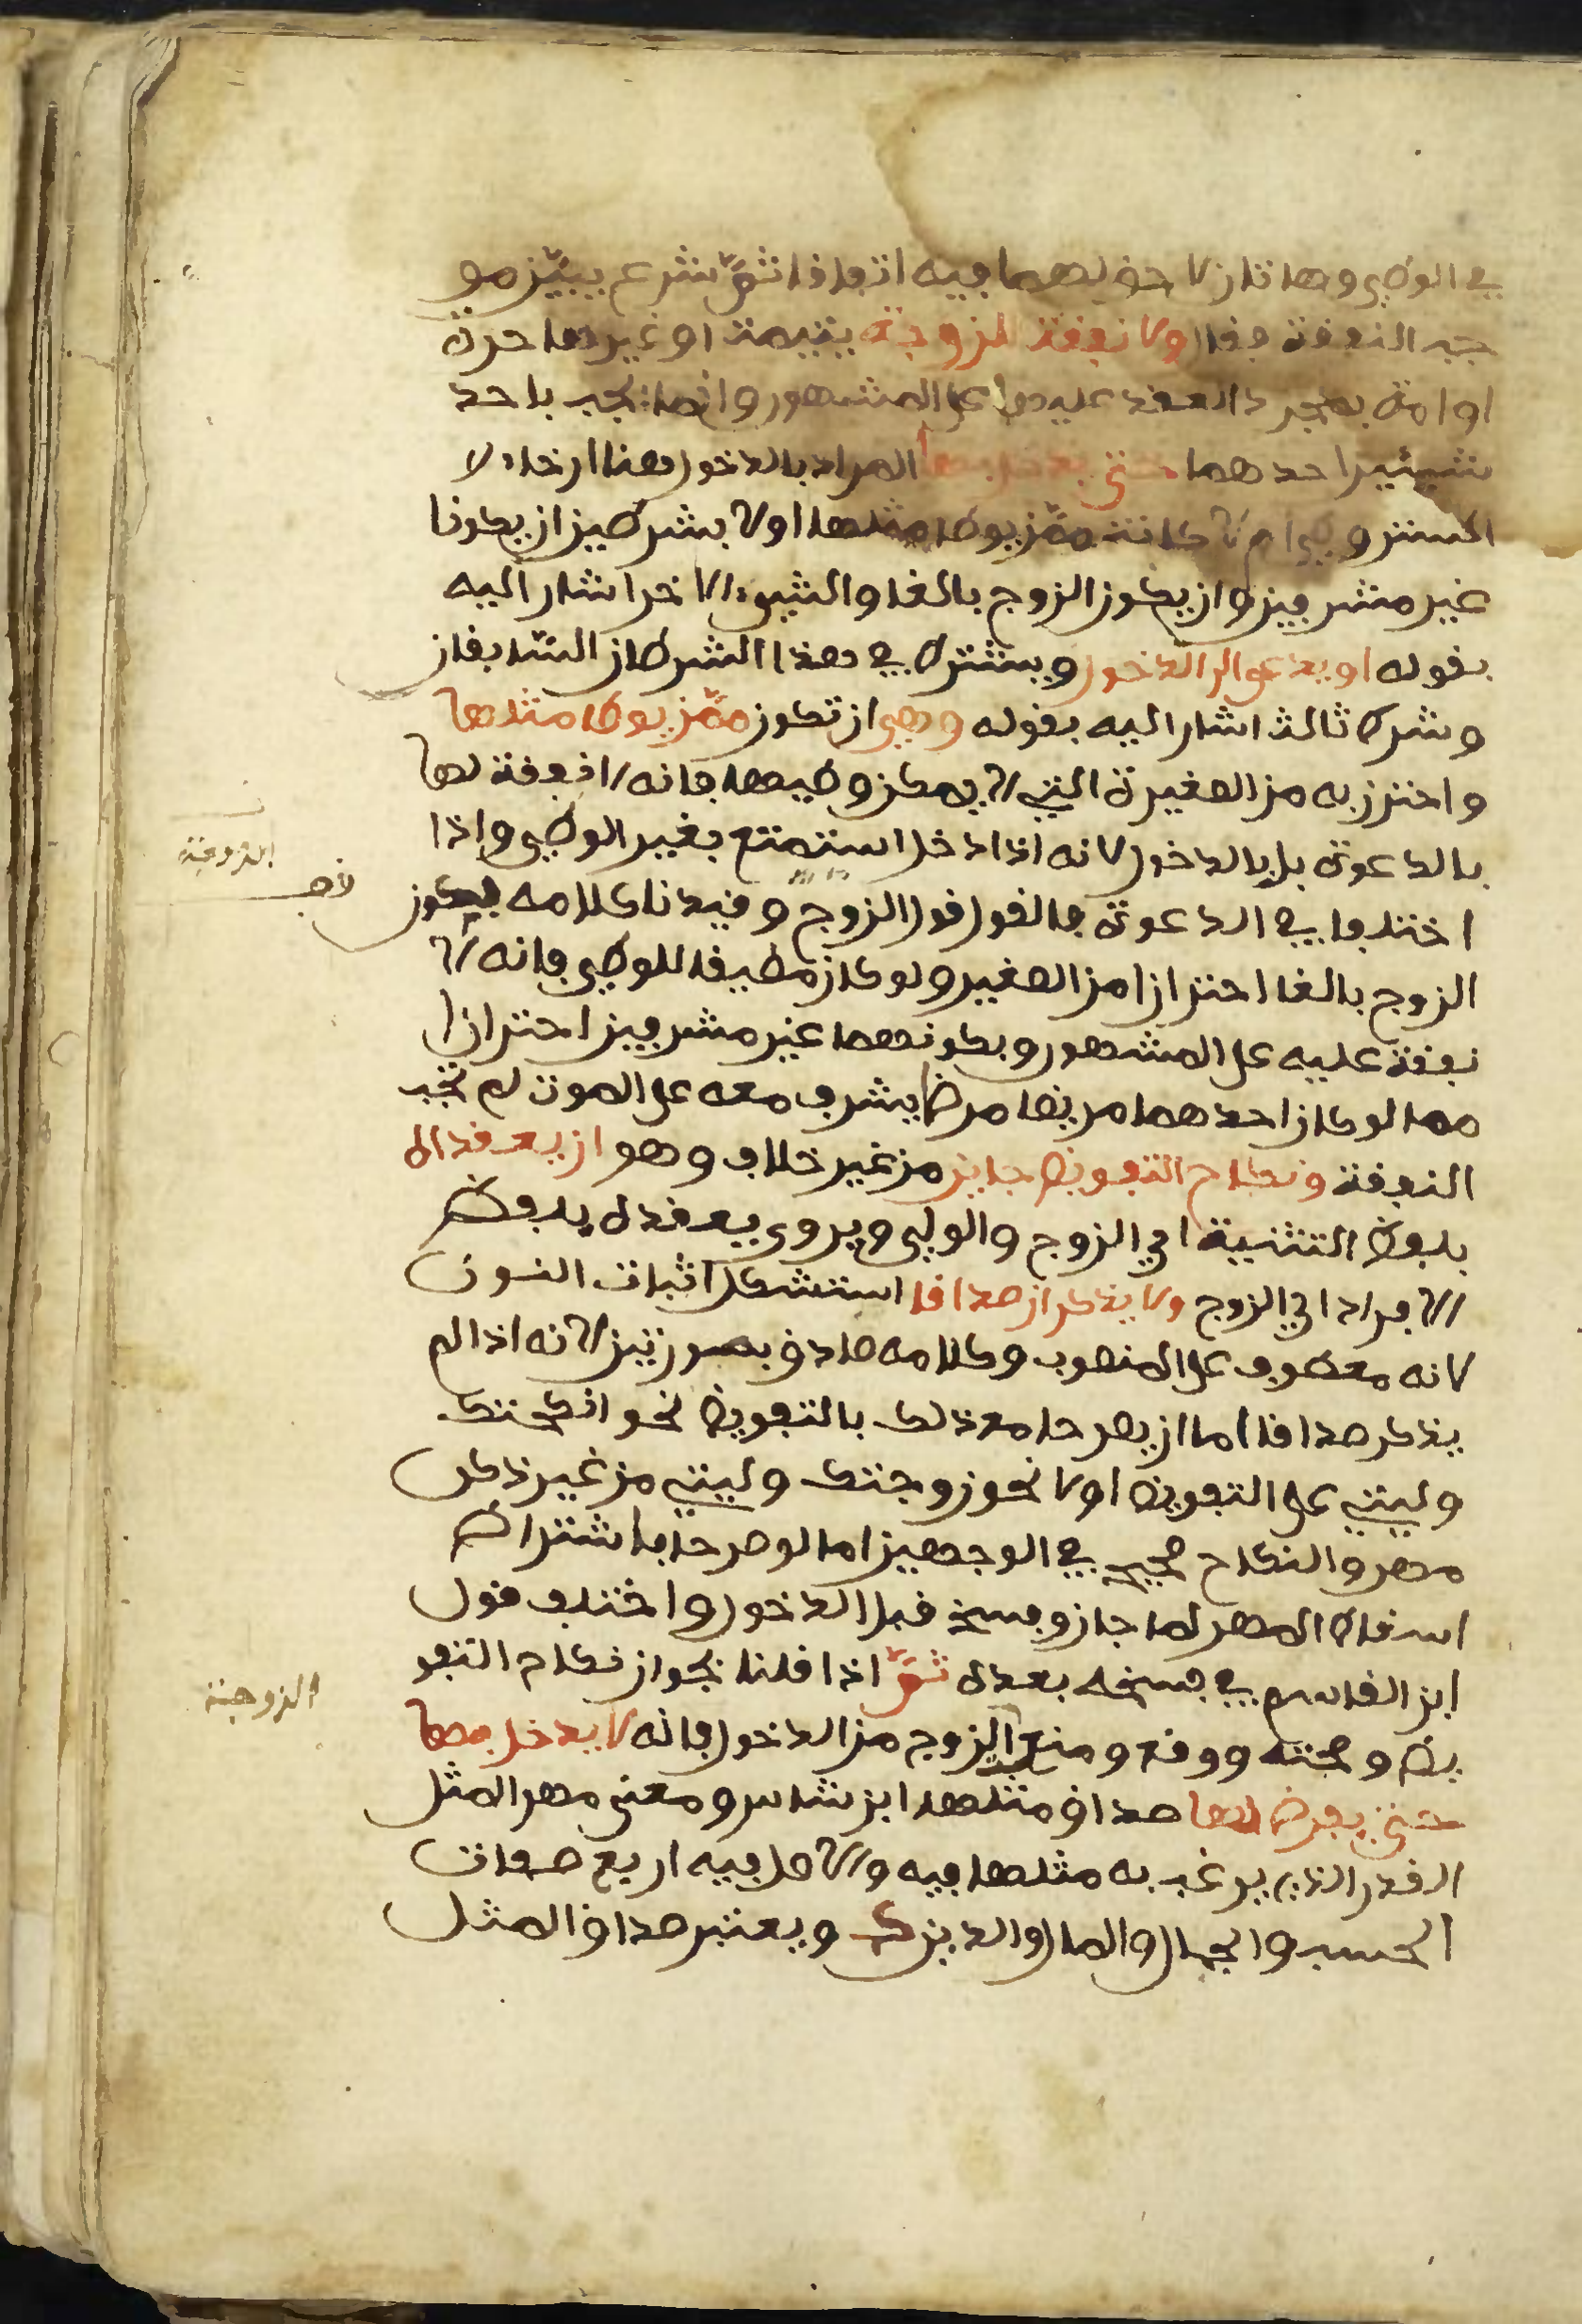 في الوطي وهاتان لا حق لهما فيه اتفاقا ثمّ شرع يبيّن مو
جب النفقة فقال ولا نفقة للزوجة يتيمة او غيرها حرة
او امة بمجرد العقد عليها على المشهور وانما تجب باحد
شيئين احدهما حتى يدخل بها المراد بالدخول هنا ارخاء ال
الستر وطي ام لا كانت ممّن يوطا مثلها اولا بشرطين ان يكونا
غير مشرفين وان يكون الزوج بالغا والشيء الاخر اشار اليه
بقوله او يدعى الى الدخول ويشترط في هذا الشرطان السّابقان
وشرط ثالث اشار اليه بقوله وهي ان تكون ممّن يوطا مثلها
واحترز به من الصغيرة التي لا يمكن وطيها فانه لا نفقة لها
بالدعوة بل بالدخول لانه اذا دخل استمتع بغير الوطي واذا
الزوجة
اختلفا في الدعوة فالقول قول الزوج وقيدنا كلامه بكون
الزوج بالغا احترازا من الصغير ولو كان مطيقا للوطي فانه لا
نفقة عليه على المشهور وبكونهما غير مشرفين احترازا
مما لو كان احدهما مريضا مرضا يشرف معه على الموت لم تجب
النفقة ونكاح التفويض جايز من غير خلاف وهو ان يعقداه
بلفظ التثنية اي الزوج والولي ويروى يعقده بلفظ
الافراد اي الزوج ولا يذكران صداقا استشكل اثبات النون
لانه معطوف على المنصوب وكلامه صادق بصورتين لانه اذا لم
يذكر صداقا اما ان يصرحا مع ذلك بالتفويض نحو انكحتك
وليتي على التفويض اولا نحو زوجتك وليتي من غير ذكر
مهر والنكاح صحيح في الوجهين اما لو صرحا باشتراط
اسقاط المهر لما جاز وفسخ قبل الدخول واختلف قول
ابن القاسم في فسخه بعده ثمّ اذا قلنا بجواز نكاح التفو
الزوجة
يض وصحته ووقع ومنع الزوج من الدخول فانه لا يدخل بها
حتى يفرض لها صداق مثلها ابن شاس ومعنى مهر المثل
القدر الذي يرغب به مثلها فيه والاصل فيه اربع صفات
الحسب والجمال والمال والدين ك ويعتبر صداق المثل